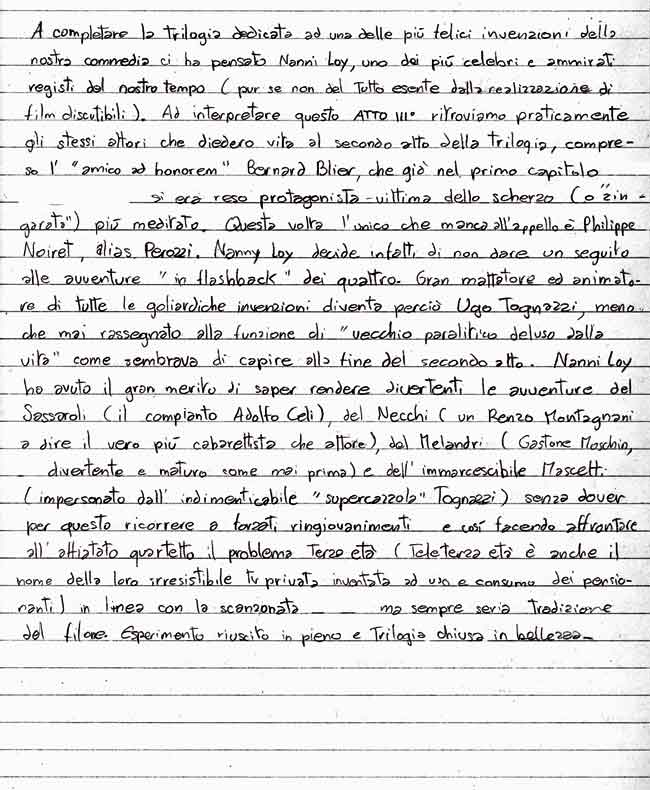 A completare la trilogia dedicata ad una delle più felici invenzioni della
nostra commedia ci ha pensato Nanni Loy, uno dei più celebri e ammirati
registi del nostro tempo (pur se non del tutto esente dalla realizzazione di
film discutibili). Ad interpretare questo ATTO III° ritroviamo praticamente
gli stessi attori che diedero vita al secondo atto della trilogia, compre-
so l' "amico ad honorem" Bernard Blier, che già nel primo capitolo
si era reso protagonista-vittima dello scherzo (o "zin-
garata") più meditato. Questa volta l'unico che manca all'appello è Philippe
Noiret, alias Perozzi. Nanny Loy decide infatti di non dare un seguito
alle avventure "in flashback" dei quattro. Gran mattatore ed animato-
re di tutte le goliardiche invenzioni diventa perciò Ugo Tognazzi, meno
che mai rassegnato alla funzione di "vecchio paralitico deluso dalla
vita" come sembrava di capire alla fine del secondo atto. Nanni Loy
ha avuto il gran merito di saper rendere divertenti le avventure del
Sassaroli (il compianto Adolfo Celi), del Necchi (un Renzo Montagnani
a dire il vero più cabarettista che attore), del Melandri (Gastone Moschin,
divertente e maturo come mai prima) e dell'immarcescibile Mascetti
(impersonato dall'indimenticabile "supercazzola" Tognazzi) senza dover
per questo ricorrere a forzati ringiovanimenti e così facendo affrontare
all'affiatato quartetto il problema Terza età (Teleterza età è anche il
nome della loro irresistibile tv privata inventata ad uso e consumo dei pensio-
nanti) in linea con la scanzonata ma sempre seria tradizione
del filone. Esperimento riuscito in pieno e Trilogia chiusa in bellezza-